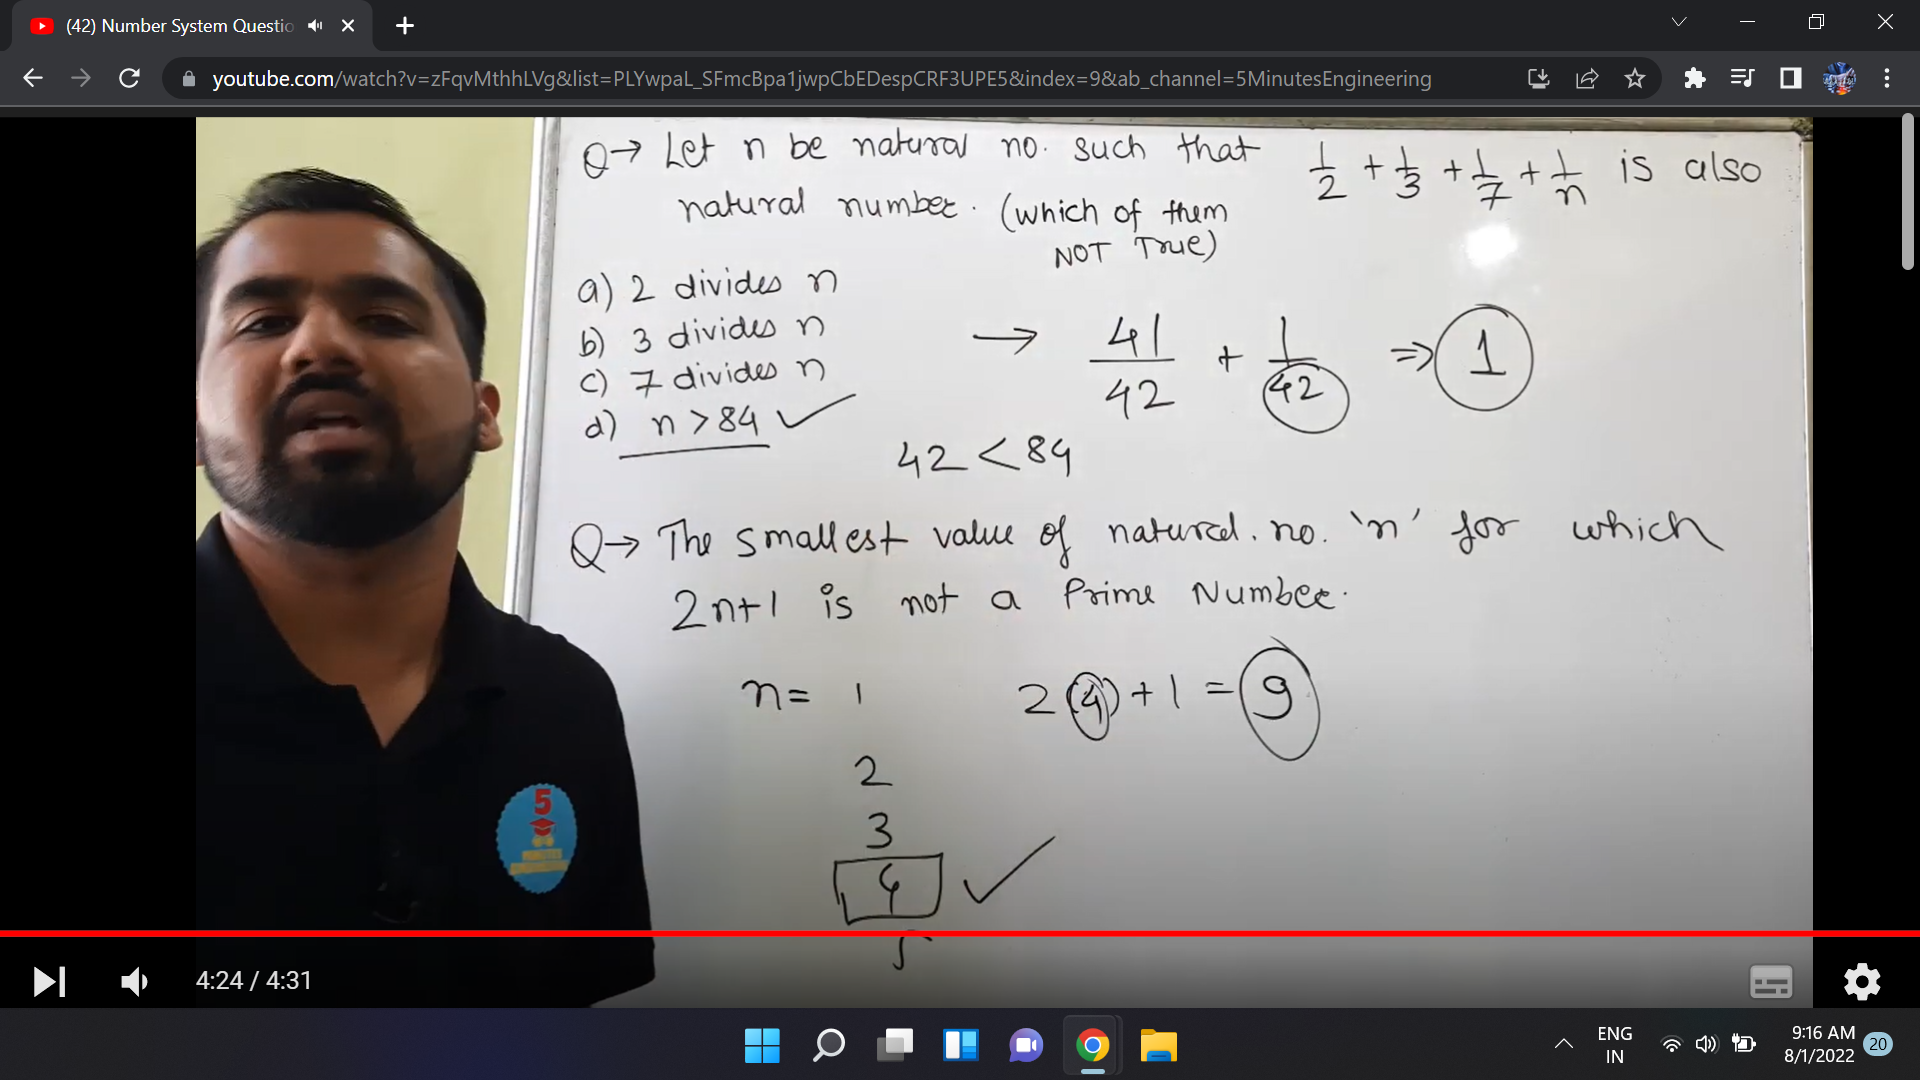 (42) Number System Questio
youtube.com/watch?v=zFqvMthhLVg&list=PLYwpaL_SFmcBpa1jwpCbEDespCRF3UPE5&index=9&ab_channel=5MinutesEngineering
Q→ Let n be natural no. such that 1/2 + 1/3 + 1/7 + 1/n is also
natural number. (which of them
NOT True)
a) 2 divides n
b) 3 divides n
c) 7 divides n
d) n > 84 ✓
→ 41/42 + 1/42 ⇒ 1
42 < 84
Q→ The smallest value of natural. no. 'n' for which
2n+1 is not a Prime Number.
n = 1
2(4) + 1 = 9
2
3
4 ✓
5
5
4:24 / 4:31
ENG
IN
9:16 AM
8/1/2022
20